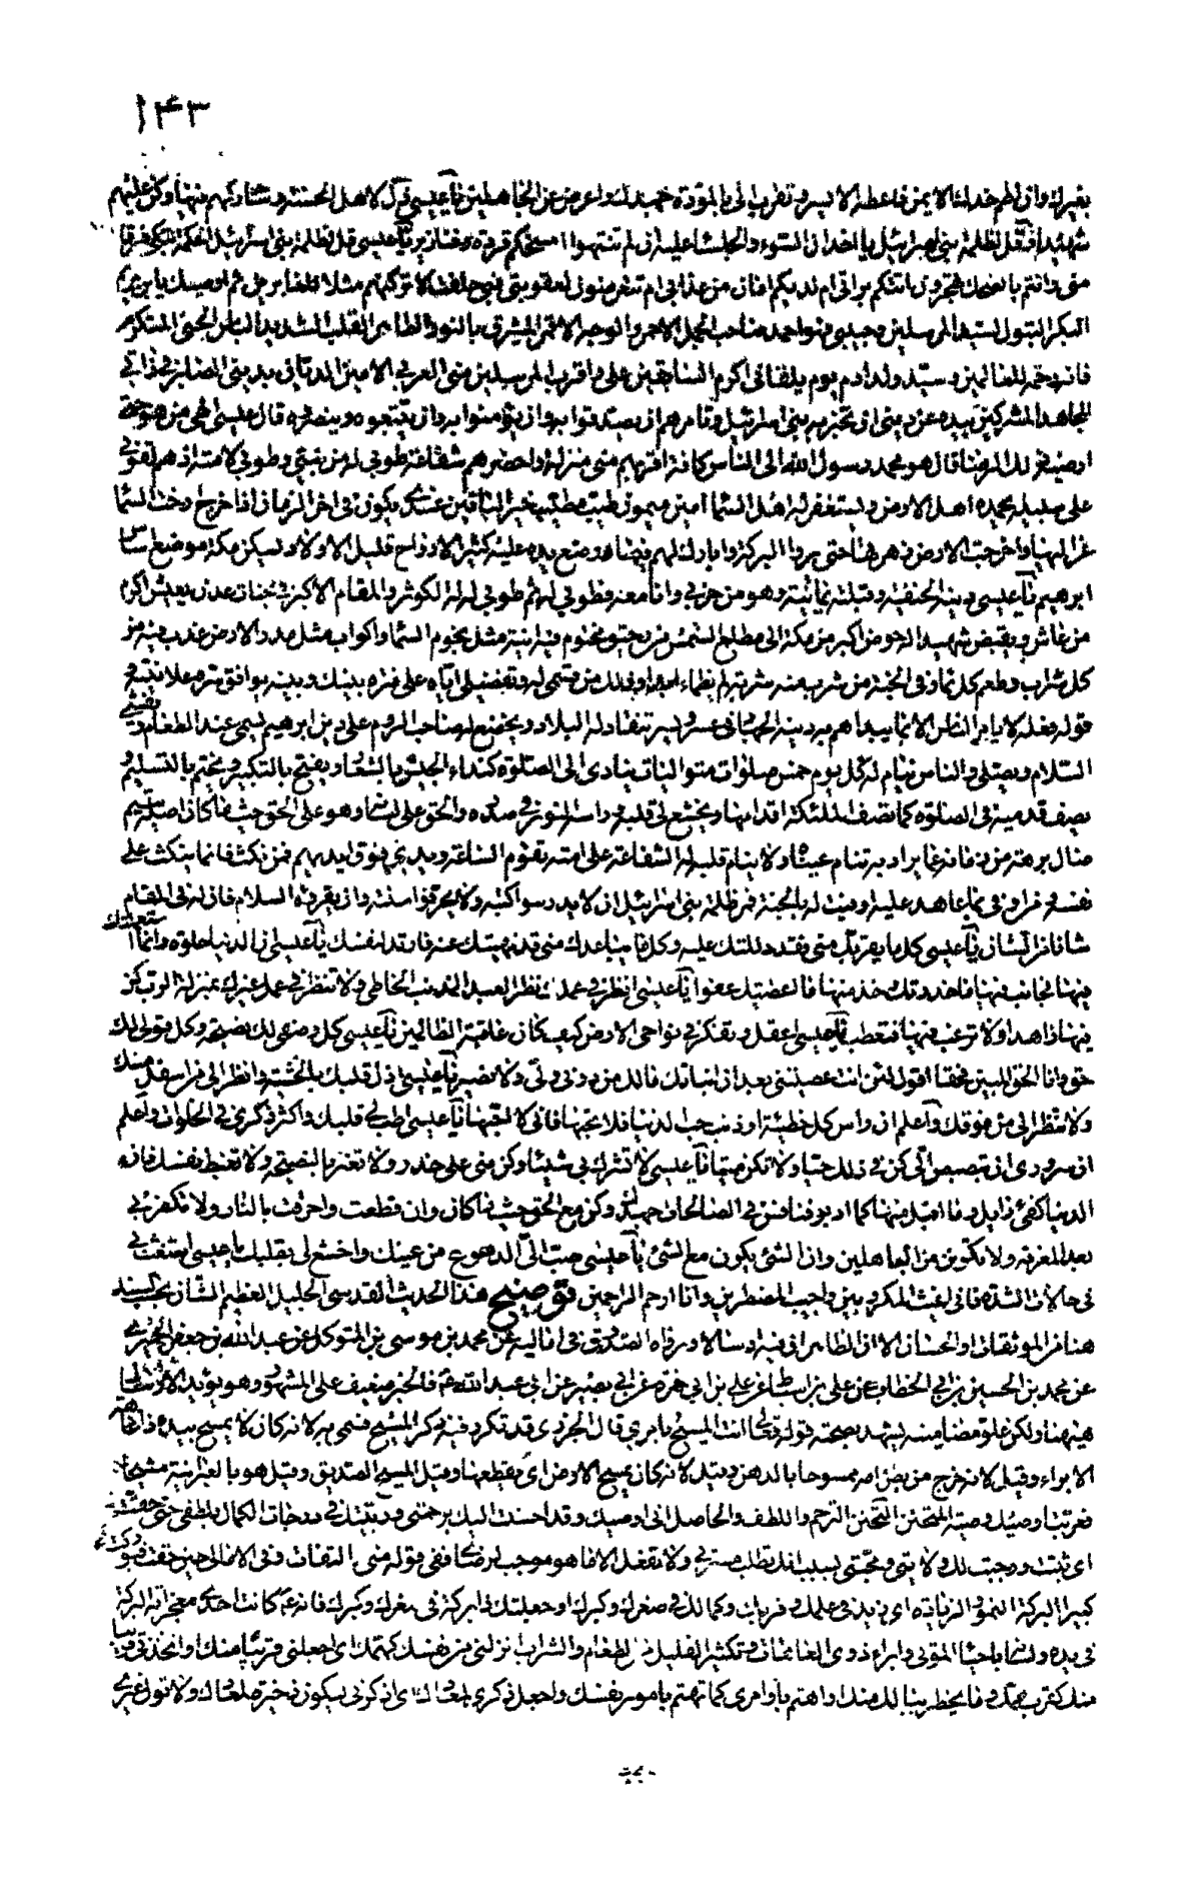 ١٤٣
بغيرك وان لطم خدك الايمن فاعطه الايسر وتقرب الى بالمودة جهدك واعرض عن الجاهلين يا عيسى ذل لاهل الحسنة وشاركهم فيها وكن عليهم
شهيدا وقل لظلمة بنى اسرائيل يا اخدان السوء والجلساء عليه ان لم تنتهوا امسخكم قردة وخنازير يا عيسى قل لظلمة بنى اسرائيل الحكمة تبكى فرقا
منى وانتم بالضحك تهجرون اتتكم براتى ام لديكم امان من عذابى ام تتعرضون لعقوبتى فبى حلفت لاتركنكم مثلا للغابرين ثم اوصيك يا بن مريم
البكر البتول بسيد المرسلين وحبيبى فهو احمد صاحب الجمل الاحمر والوجه الاقمر المشرق بالنور الطاهر القلب الشديد الباس الحيى المتكرم
فانه رحمة للعالمين وسيد ولد ادم يوم يلقانى اكرم السابقين على واقرب المرسلين منى العربى الامين الديان بدينى الصابر فى ذاتى
المجاهد المشركين بيده عن دينى ان تخبر به بنى اسرائيل وتامرهم ان يصدقوا به وان يؤمنوا به وان يتبعوه وينصروه قال عيسى الهى من هو حتى
ارضيه فلك الرضا قال هو محمد رسول الله الى الناس كافة اقربهم منى منزلة واحضرهم شفاعة طوبى له من نبى وطوبى لامته ان هم لقونى
على سبيله يحمده اهل الارض ويستغفر له اهل السماء امين ميمون طيب مطيب خير الباقين عندى يكون فى اخر الزمان اذا خرج ارخت السماء
عزاليها واخرجت الارض زهرتها حتى يروا البركة وابارك لهم فيما وضع يده عليه كثير الازواج قليل الاولاد يسكن مكة موضع اساس
ابرهيم يا عيسى دينه الحنيفية وقبلته يمانية وهو من حزبى وانا معه فطوبى له ثم طوبى له له الكوثر والمقام الاكبر فى جنات عدن يعيش اكرم
من عاش ويقبض شهيدا له حوض اكبر من مكة الى مطلع الشمس من رحيق مختوم فيه انية مثل نجوم السماء واكواب مثل مدر الارض عذب فيه من
كل شراب وطعم كل ثمار فى الجنة من شرب منه شربة لم يظماء ابدا وذلك من قسمى له وتفضيلى اياه على فترة بينك وبينه يوافق سره علانيته و
قوله فعله لا يامر الناس الا بما يبداهم به دينه الجهاد فى عسر ويسر تنقاد له البلاد ويخضع له صاحب الروم على دين ابرهيم يسمى عند الطعام ويفشى
السلام ويصلى والناس نيام له كل يوم خمس صلوات متواليات ينادى الى الصلوة كنداء الجيش بالشعار ويفتتح بالتكبير ويختتم بالتسليم و
يصف قدميه فى الصلوة كما تصف الملئكة اقدامها ويخشع لى قلبه وراسه النور فى صدره والحق على لسانه وهو على الحق حيثما كان اصله يتيم
ضال برهة من زمانه عما يراد به تنام عيناه ولا ينام قلبه له الشفاعة وعلى امته تقوم الساعة ويدى فوق ايديهم فمن نكث فانما ينكث على
نفسه ومن اوفى بما عاهد عليه اوفيت له بالجنة فمر ظلمة بنى اسرائيل ان لا يدرسوا كتبه ولا يحرفوا سنته وان يقرؤه السلام فان له فى المقام
شانا من الشان يا عيسى كل ما يقربك منى فقد دللتك عليه وكل ما يباعدك منى قد نهيتك عنه فارتد لنفسك يا عيسى ان الدنيا حلوة وانما استعملتك
فيها فجانب منها ما حذرتك وخذ منها ما اعطيتك عفوا يا عيسى انظر فى عملك نظر العبد المذنب الخاطى ولا تنظر فى عمل غيرك بمنزلة الرب كن
فيها زاهدا ولا ترغب فيها فتعطب يا عيسى اعقل وتفكر فى نواحى الارض كيف كان عاقبة الظالمين يا عيسى كل وصفى لك نصيحة وكل قولى لك
حق وانا الحق المبين فحقا اقول لئن انت عصيتنى بعد ان انباتك مالك من دونى ولى ولا نصير يا عيسى اذل قلبك بالخشية وانظر الى من اسفل منك
ولا تنظر الى من فوقك واعلم ان راس كل خطيئة او ذنب حب الدنيا فلا تحبها فانى لا احبها يا عيسى اطب لى قلبك واكثر ذكرى فى الخلوات واعلم
ان سرورى ان تبصبص الى كن فى ذلك حيا ولا تكن ميتا يا عيسى لا تشرك بى شيئا وكن منى على حذر ولا تغتر بالنصيحة ولا تغبط نفسك فان
الدنيا كفئ زايل وما اقبل منها كما ادبر فنافس فى الصالحات جهدك وكن مع الحق حيثما كان وان قطعت واحرقت بالنار ولا تكفر بى
بعد المعرفة ولا تكونن من الجاهلين وان الشئ يكون مع الشئ يا عيسى صب الى الدموع من عينيك واخشع لى بقلبك يا عيسى استغث بى
فى حالات الشدة فانى اغيث المكروبين واجيب المضطرين وانا ارحم الراحمين توضيح هذا الحديث القدسى الجليل العظيم الشان بحسب السند
هنا من الموثقات او الحسان الا ان الظاهر ان فيه ارسالا ورواه الصدوق فى اماليه عن محمد بن موسى بن المتوكل عن عبد الله بن جعفر الحميرى
عن محمد بن الحسين بن ابى الخطاب عن على بن اسباط عن على بن ابى حمزة عن ابى بصير عن ابى عبد الله ع فالخبر ضعيف على المشهور وهو يؤيد الارسال
هيهنا ولكن علو مضامينه يشهد بصحته قوله تعالى انت المسيح بامرى قال الجزرى قد تكرر فيه ذكر المسيح فسمى به لانه كان لا يمسح بيده ذا عاهة
الا براء وقيل لانه خرج من بطن امه ممسوحا بالدهن وقيل لانه كان يمسح الارض اى يقطعها وقيل المسيح الصديق وقيل هو بالعبرانية مشيحا
فعرب اوصيك وصية المتحنن التحنن الترحم واللطف والحاصل انى اوصيك وقد احسنت اليك برحمتى وربيتك فى درجات الكمال بلطفى حتى حقت
اى ثبتت ووجبت لك ولايتى ومحبتى بسبب انك تطلب مسرتى ولا تفعل الا ما هو موجب لرضاى ففى قوله منى التفات وفى الامالى حين حقت وبوركت
كبيرا البركة النمو والزيادة اى زيد فى علمك وقربك وكمالك فى صغرك وكبرك او جعلتك ذا بركة فى صغرك وكبرك فانه ع كانت احدى معجزاته البركة
فى يده ولسانه باحياء الموتى وابراء ذوى العاهات وتكثير القليل من الطعام والشراب انزلنى من نفسك كهمك اى اجعلنى قريبا منك او اتخذنى قريبا
منك كقرب همك وما يخطر ببالك منك او اهتم باوامرى كما تهتم بامور نفسك واجعل ذكرى لمعادك اى اذكرنى ليكون ذخيرة لمعادك ولا تول غيرى